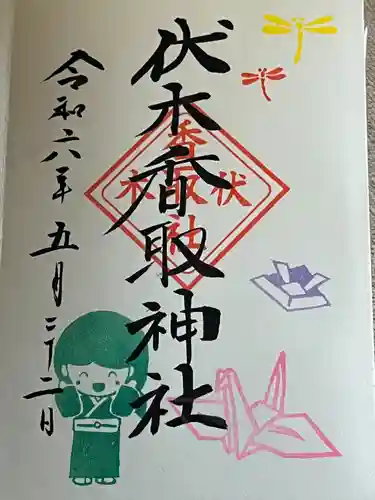 伏木香取神社
令和六年五月二十二日
香
伏取木
社